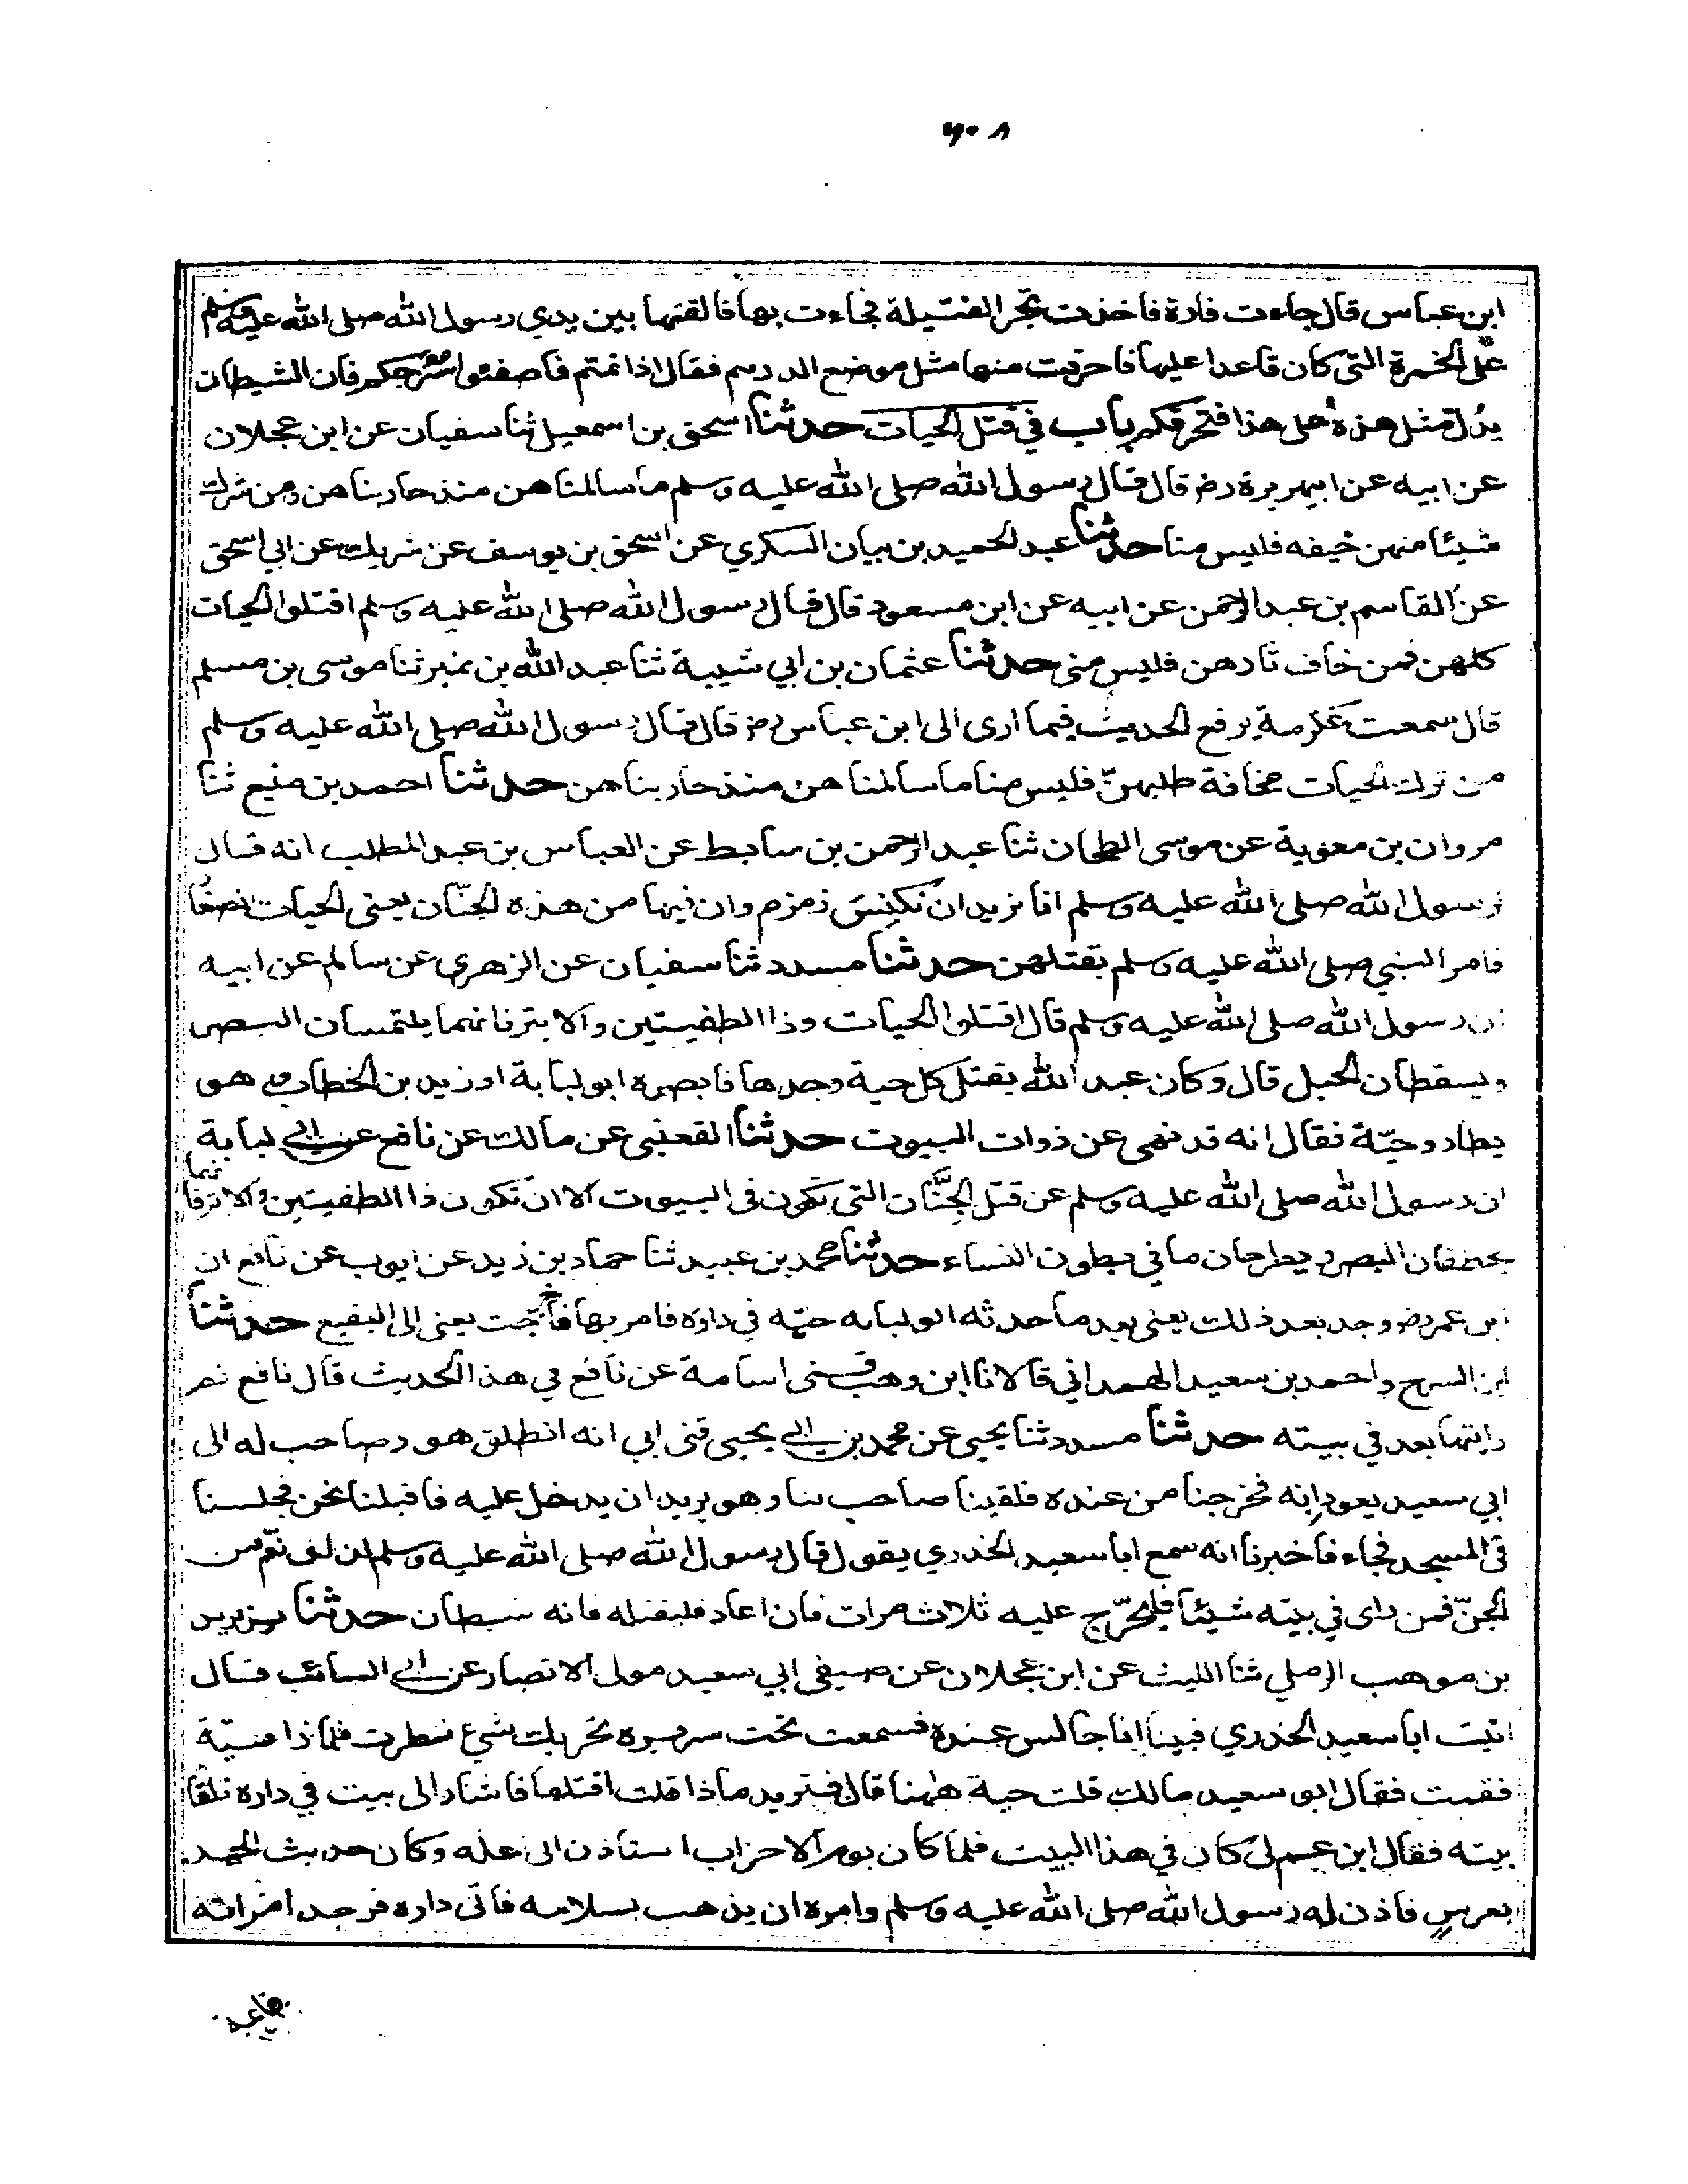 ٦٠٨
ابن عباس قال جاءت فارة فاخذت تجر الفتيلة فجاءت بها فالقتها بين يدي رسول الله صلى الله عليه وسلم
على الخمرة التى كان قاعدا عليها فاحرقت منها مثل موضع الدرهم فقال اذا نمتم فاطفئوا سرجكم فان الشيطان
يدل مثل هذه على هذا فتحرقكم باب في قتل الحيات حدثنا اسحق بن اسمعيل ثنا سفيان عن ابن عجلان
عن ابيه عن ابي هريرة رضـ قال قال رسول الله صلى الله عليه وسلم ما سالمناهن منذ حاربناهن ومن ترك
شيئا منهن خيفه فليس منا حدثنا عبد الحميد بن بيان السكري عن اسحق بن يوسف عن شريك عن ابي اسحق
عن القاسم بن عبد الرحمن عن ابيه عن ابن مسعود قال قال رسول الله صلى الله عليه وسلم اقتلوا الحيات
كلهن فمن خاف ثارهن فليس منى حدثنا عثمان بن ابي شيبة ثنا عبد الله بن نمير ثنا موسى بن مسلم
قال سمعت عكرمة يرفع الحديث فيما ارى الى ابن عباس رضـ قال قال رسول الله صلى الله عليه وسلم
من ترك الحيات مخافة طلبهنّ فليس منا ما سالمناهن منذ حاربناهن حدثنا احمد بن منيع ثنا
مروان بن معوية عن موسى الطحان ثنا عبد الرحمن بن سابط عن العباس بن عبد المطلب انه قال
لرسول الله صلى الله عليه وسلم انا نريد ان نكنس زمزم وان فيها من هذه الجنّان يعنى الحيات الصغار
فامر النبي صلى الله عليه وسلم بقتلهن حدثنا مسدد ثنا سفيان عن الزهري عن سالم عن ابيه
ان رسول الله صلى الله عليه وسلم قال اقتلوا الحيات وذا الطفيتين والابتر فانهما يلتمسان البصر
ويسقطان الحبل قال وكان عبد الله يقتل كل حية وجدها فابصره ابو لبابة او زيد بن الخطاب وهو
يطارد حيّة فقال انه قد نهى عن ذوات البيوت حدثنا القعنبى عن مالك عن نافع عن ابي لبابة
ان رسول الله صلى الله عليه وسلم عن قتل الجنَّان التى تكون فى البيوت الا ان تكون ذا الطفيتين والابتر فانهما
يخطفان البصر ويطرحان ما في بطون النساء حدثنا محمد بن عبيد ثنا حماد بن زيد عن ايوب عن نافع ان
ابن عمر رضـ وجد بعد ذلك يعنى بعد ما حدثه ابو لبابه حيّه في داره فامر بها فاخرجت يعنى الى البقيع حدثنا
ابن السرح واحمد بن سعيد الهمداني قالا نا ابن وهب قنى اسامة عن نافع في هذا الحديث قال نافع ثم
رايتها بعد في بيته حدثنا مسدد ثنا يحيى عن محمد بن ابي يحيى قنى ابي انه انطلق هو وصاحب له الى
ابي سعيد يعودانه فخرجنا من عنده فلقينا صاحب لنا وهو يريد ان يدخل عليه فاقبلنا نحن فجلسنا
فى المسجد فجاء فاخبرنا انه سمع ابا سعيد الخدري يقول قال رسول الله صلى الله عليه وسلم ان الهوامّ من
الجنّ فمن راى في بيته شيئا فليحرّج عليه ثلاث مرات فان عاد فليقتله فانه شيطان حدثنا يزيد
بن موهب الرملي ثنا الليث عن ابن عجلان عن صيفى ابي سعيد مولى الانصار عن ابي السائب قال
اتيت ابا سعيد الخدري فبينا انا جالس عنده سمعت تحت سريره تحريك شيء فنظرت فاذا حيّة
فقمت فقال ابو سعيد مالك قلت حية ههنا قال فتريد ماذا قلت اقتلها فاشار الى بيت في داره تلقاء
بيته فقال ابن عم لى كان في هذا البيت فلما كان يوم الاحزاب استاذن الى اهله وكان حديث العهد
بعرس فاذن له رسول الله صلى الله عليه وسلم وامره ان يذهب بسلاحه فاتى داره فوجد امراته